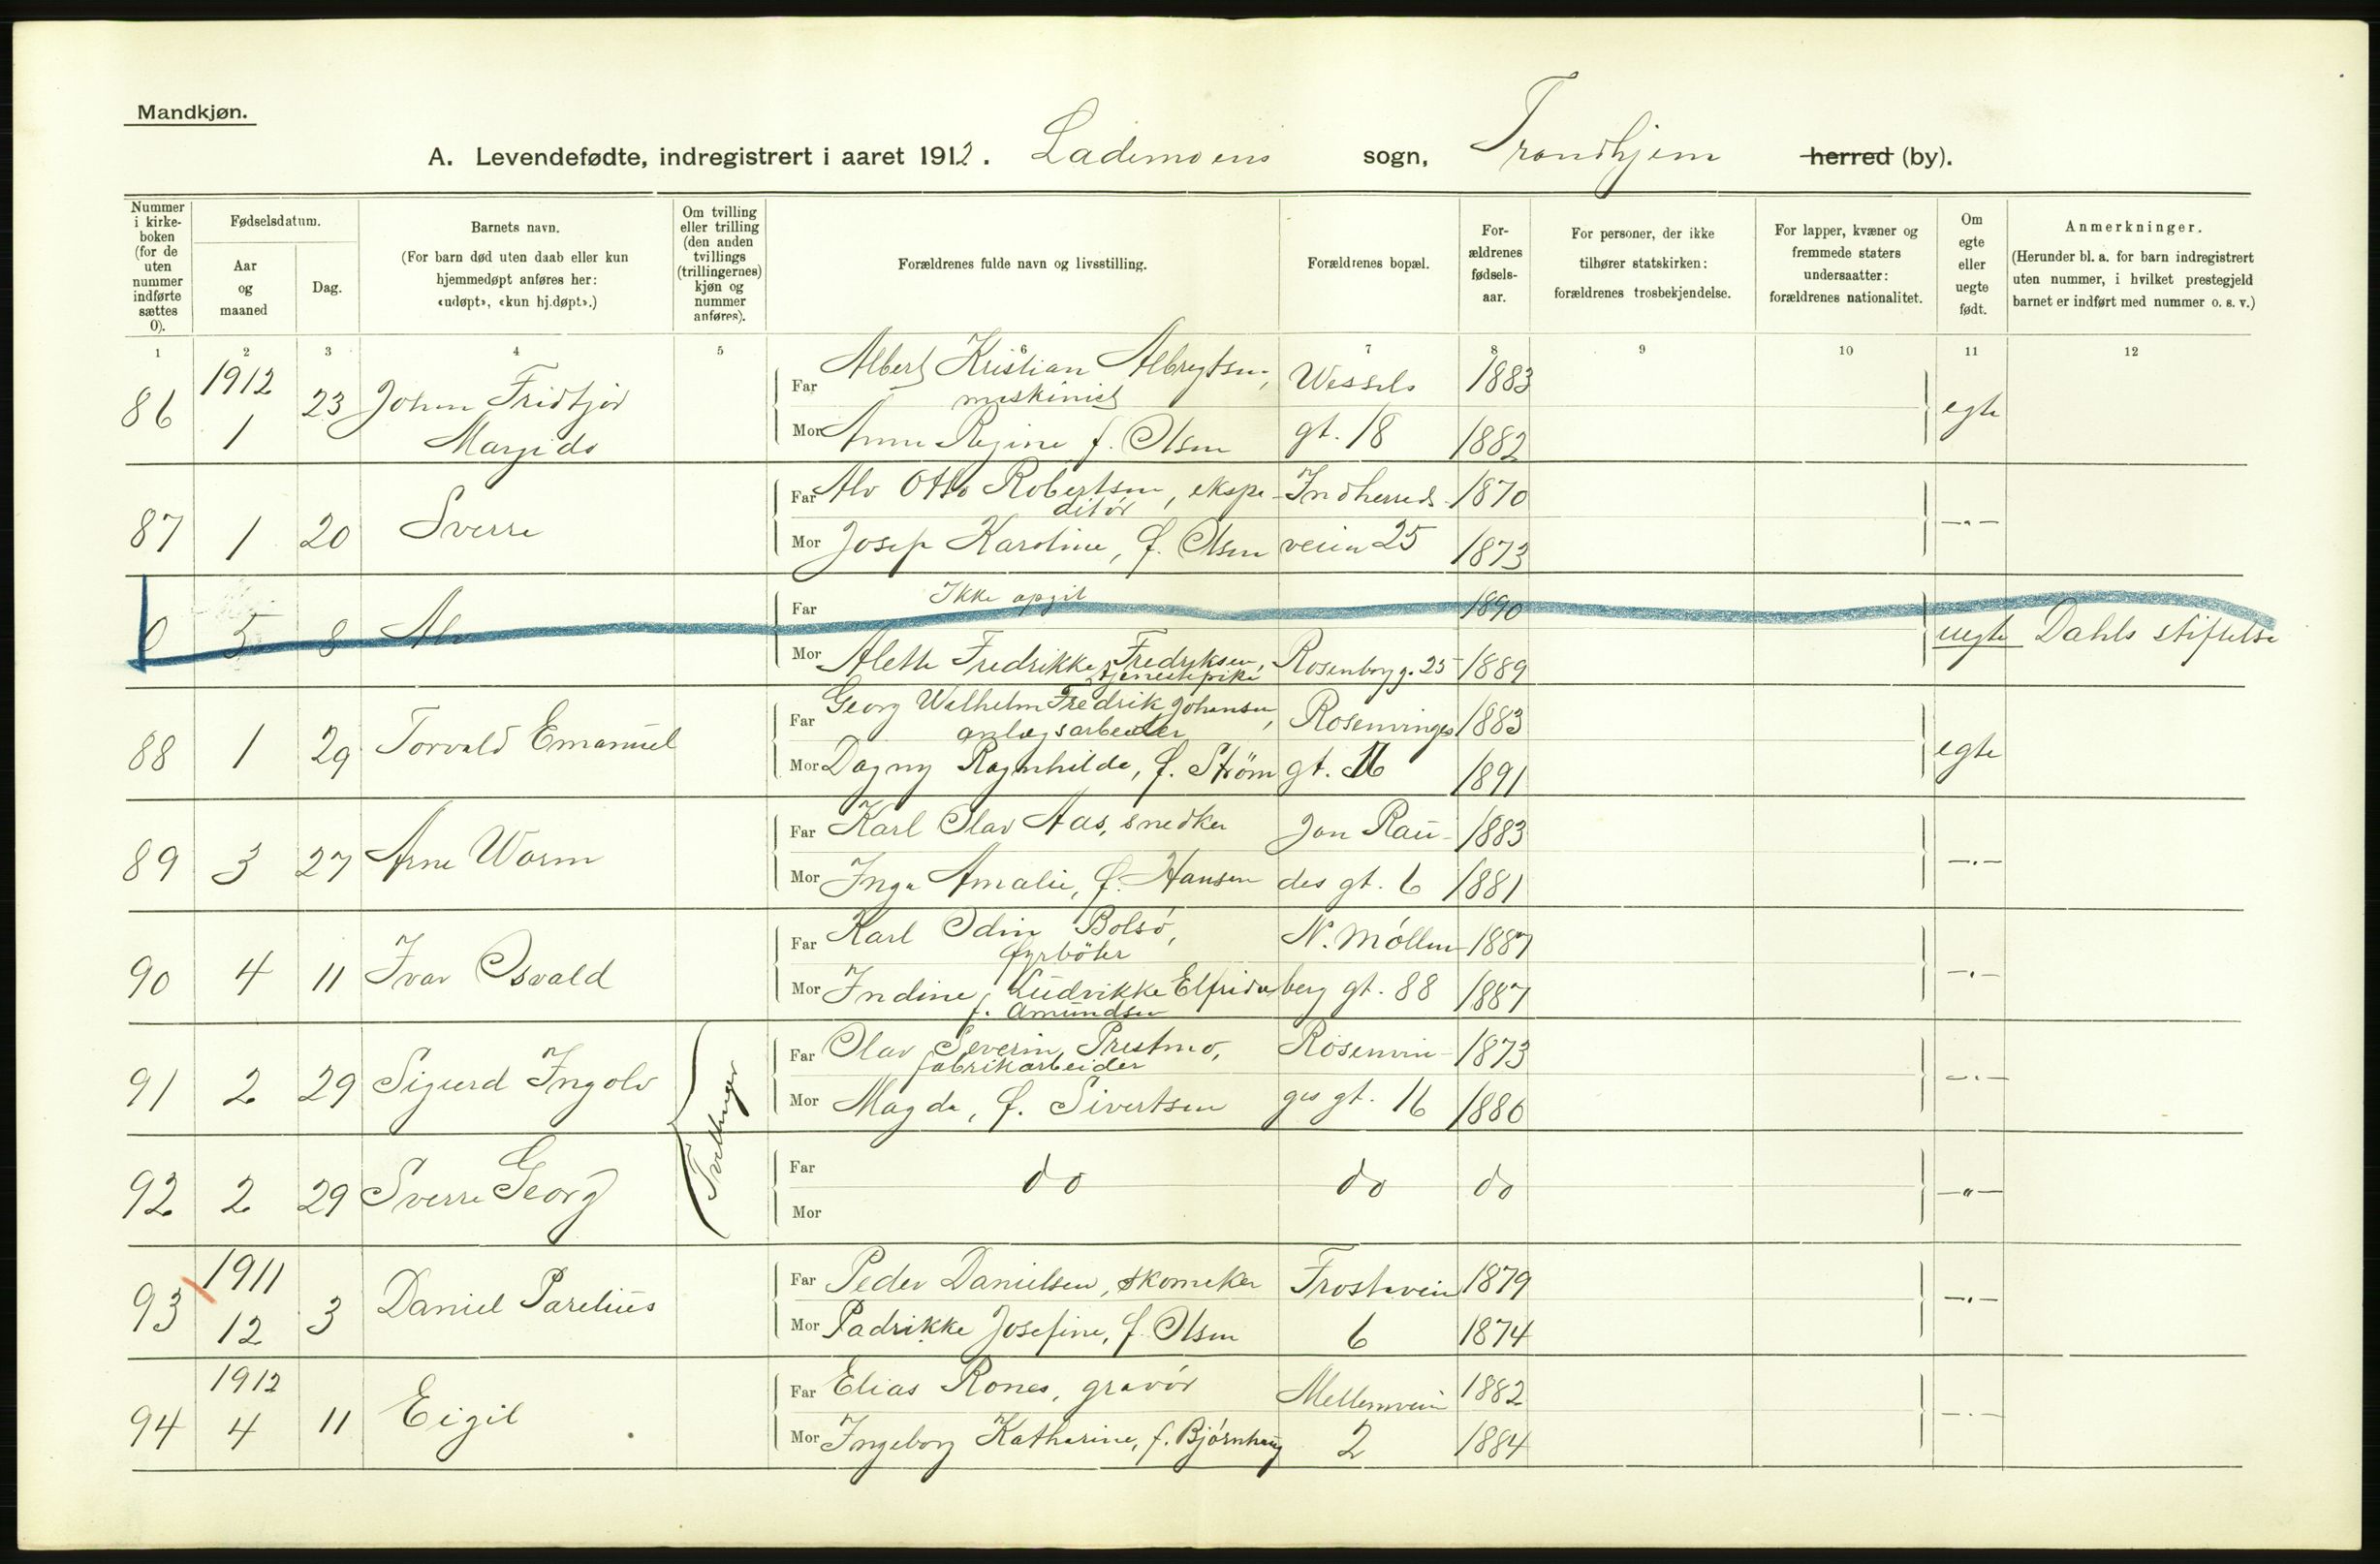 Mandkjøn.
A. Levendefødte, indregistrert i aaret 1912. Lademoens sogn, Trondhjem herred (by).
Nummer i kirke-boken (for de uten nummer indførte sættes 0).
Fødselsdatum.
Aar og maaned
Dag.
Barnets navn.
(For barn død uten daab eller kun hjemmedøpt anføres her: «udøpt», «kun hj.døpt».)
Om tvilling eller trilling (den anden tvillings (trillingernes) kjøn og nummer anføres).
Forældrenes fulde navn og livsstilling.
Forældrenes bopæl.
For-ældrenes fødsels-aar.
For personer, der ikke tilhører statskirken: forældrenes trosbekjendelse.
For lapper, kvæner og fremmede staters undersaatter: forældrenes nationalitet.
Om egte eller uegte født.
Anmerkninger.
(Herunder bl. a. for barn indregistrert uten nummer, i hvilket prestegjeld barnet er indført med nummer o. s. v.)
1 2 3 4 5 6 7 8 9 10 11 12
86 1912 1 23 Johan Fridtjov Margido
Far Albert Kristian Albregtsen, maskinist Wessels 1883
Mor Anna Regine f. Olsen gt. 18 1882 egte
87 1 20 Sverre
Far Alv Otto Robertsen, ekspeditør Indherreds- 1870
Mor Josefa Karoline, f. Olsen veien 25 1873 —"—
0 5 8 Alv
Far Ikke opgit 1890
Mor Alette Fredrikke Fredriksen, tjenestepike Rosenborg g. 25 1889 uegte Dahls stiftelse
88 1 29 Torvald Emanuel
Far Georg Wilhelm Fredrik Johansen, anlægsarbeider Rosenvinges 1883
Mor Dagny Ragnhilda, f. Strøm gt. 16 1891 egte
89 3 27 Arne Worm
Far Karl Olav Aas, snedker Jon Rau- 1883
Mor Inga Amalie, f. Hansen des gt. 6 1881 —"—
90 4 11 Ivar Osvald
Far Karl Odin Bolsø, fyrbøter N. Møllen- 1887
Mor Indine Ludvikke Elfrida f. Amundsen berg gt. 88 1887 —"—
91 2 29 Sigurd Ingolv Tvillinger
Far Olav Severin Prestmo, fabrikarbeider Rosenvin- 1873
Mor Magda, f. Sivertsen ges gt. 16 1886 —"—
92 2 29 Sverre Georg
Far do do do
Mor —"—
93 1911 12 3 Daniel Parelius
Far Peder Danielsen, skomaker Frostavein 1879
Mor Padrikke Josefine, f. Olsen 6 1874 —"—
94 1912 4 11 Eigil
Far Elias Rones, gravør Mellemvein 1882
Mor Ingeborg Katharine, f. Bjørnhaug 2 1884 —"—